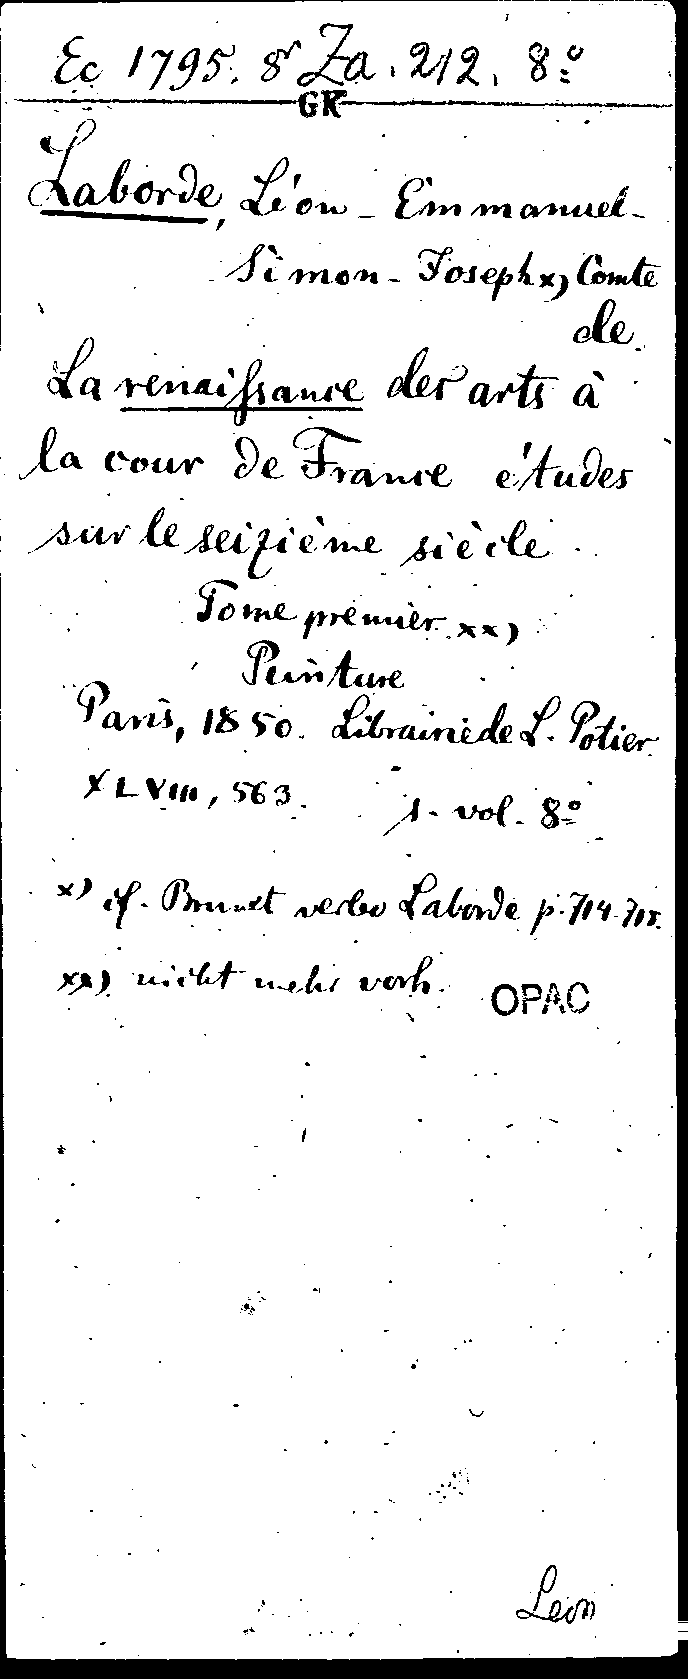 Ec 1795. 8r Za. 212. 8o
GK
Laborde, Léon-Emmanuel-
Simon-Joseph x) Comte
de.
La renaissance des arts à
la cour de France études
sur le seizième siècle
Tome premier xx)
Peinture
Paris, 1850. Librairie de L. Potier.
XLVIII, 563. 1. vol. 8o
x) cf. Brunet verbo Laborde p. 714-715.
xx) nicht mehr vorh.
OPAC
Leon